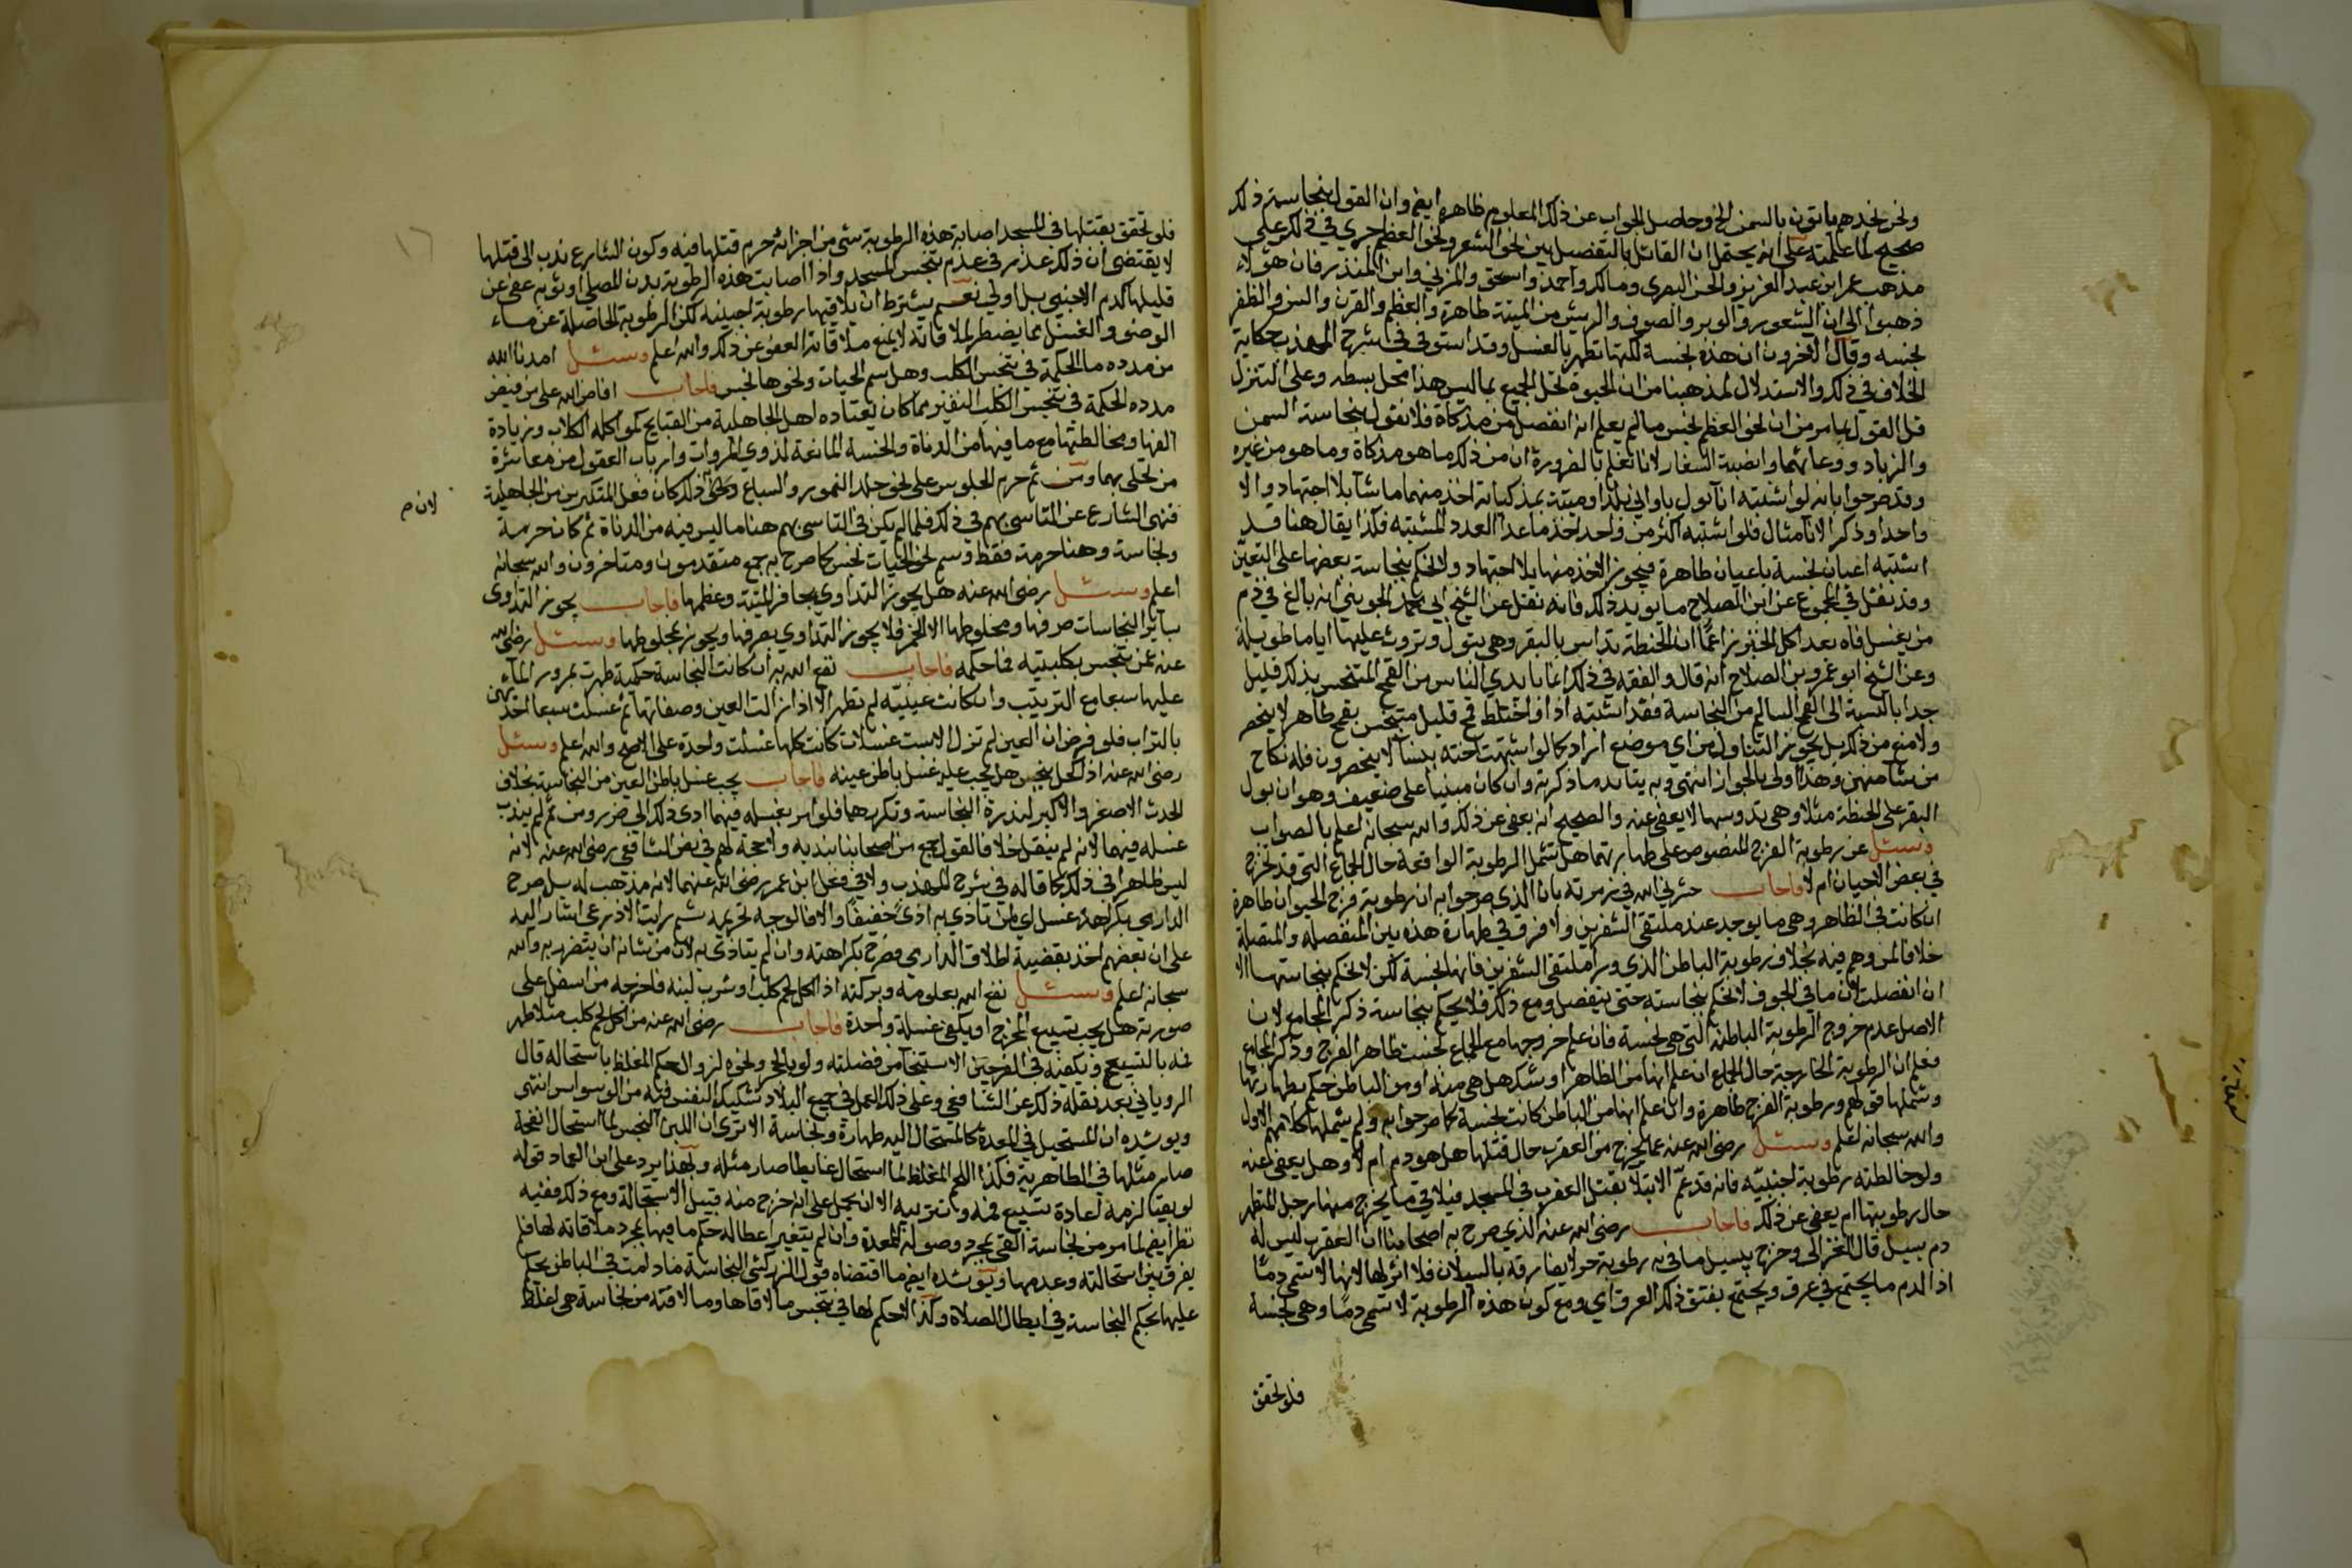 ونحن نجدهم ياتون بالسمن الخ وحاصل الجواب عن ذلك المعلوم ظاهره ايضا وان القول بنجاسة ذلك
صحيح لما علمته على انه يحتمل ان القائل بالتفصيل بين نحو الشعر ونحو العظم جرى في ذلك على
مذهب عمر ابن عبد العزيز والحسن البصري ومالك واحمد واسحق والمزني وابن المنذر فان هؤلاء
ذهبوا الى ان الشعور والوبر والصوف والريش من الميتة طاهرة والعظم والقرن والسن والظفر
نجسه وقال اخرون ان هذه نجسة لكنها تطهر بالغسل وقد استوفى في شرح المهذب حكاية
الخلاف في ذلك والاستدلال لمذهبنا من ان الحيوة تحل الجميع بما ليس هذا محل بسطه وعلى التنزل
قبل القول بما مر من ان نحو العظم نجس ما لم يعلم انه انفصل من مذكاة فلا نقول بنجاسة السمن
والزباد ووعائهما وانصبة السفار لانا نعلم بالضرورة ان من ذلك ما هو مذكاة وما هو من غيره
وقد صرحوا بانه لو اشتبه انا بول باواني بلد او ميتة بمذكياته اخذ منهما ما شا بلا اجتهاد الا
واحدا وذكر الانا مثال فلو اشتبه اكثر من واحد اخذ ما عدا العدد المشتبه فكذا يقال هنا قد
اشتبه اعيان نجسة باعيان طاهرة فيجوز الاخذ منها بلا اجتهاد ولا نحكم بنجاسة بعضها على التعين
وقد نقل في المجموع عن ابن الصلاح ما يويد ذلك فانه نقل عن الشيخ ابي محمد الجويني انه بالغ في ذم
من يغسل فاه بعد اكل الخبز زاعما ان الحنطة تداس بالبقر وهي تبول وتروث عليها اياما طويلة
وعن الشيخ ابو عمرو بن الصلاح انه قال والفقه في ذلك ان ما بايدي الناس من القمح المتنجس بذلك قليل
جدا بالنسبة الى القمح السالم من النجاسة فقد اشتبه اذا واختلط قمح قليل متنجس بقمح طاهر لا ينحصر
ولا منع من ذلك بل يجوز التناول من اي موضع اراد كما لو اشتبهت اخته بنسا لا ينحصرون فله نكاح
من شا منهن وهذا اولى بالجواز انتهى وبه يتايد ما ذكرته وان كان مبنيا على ضعيف وهو ان بول
البقر على الحنطة مثلا وهي تدوسها لا يعفى عنه والصحيح انه يعفى عن ذلك والله سبحانه اعلم بالصواب
وسئل عن رطوبة الفرج المنصوص على طهارتهما هل تشمل الرطوبة الواقعة حال الجماع التي قد تخرج
في بعض الاحيان ام لا فاجاب حشرني الله في زمرته بان الذي صرحوا به ان رطوبة فرج الحيوان طاهرة
ان كانت في الظاهر وهي ما يوجد عند ملتقى الشفرين ولا فرق في طهارة هذه بين المنفصلة والمتصلة
خلافا لمن وهم فيه بخلاف رطوبة الباطن الذي ورا ملتقى الشفرين فانها نجسة لكن لا نحكم بنجاستها الا
ان انفصلت لان ما في الجوف لا نحكم بنجاسته حتى ينفصل ومع ذلك فلا يحكم بنجاسة ذكر المجامع لان
الاصل عدم خروج الرطوبة الباطنة التي هي نجسة فان علم خروجها مع الجماع نجست ظاهر الفرج وذكر المجامع
فعلم ان الرطوبة الخارجة حال الجماع ان علم انها من الظاهر او شك هل هي منه او من الباطن حكم بطهارتها
وشملها قولهم ورطوبة الفرج طاهرة وان علم انها من الباطن كانت نجسة كما صرحوا به ولم يشملها كلامهم الاول
والله سبحانه اعلم وسئل رضي الله عنه عما يخرج من العقرب حال قتلها هل هو دم ام لا وهل يعفى عنه
ولو خالطته رطوبة اجنبيه فانه قد عم الابتلا بقتل العقرب في المسجد فيلاقي ما يخرج منها رجل المتطهر
حال رطوبتها ام يعفى عن ذلك فاجاب رضي الله عنه الذي صرح به اصحابنا ان العقرب ليس له
دم يسيل قال الغزالي وخرج بيسيل ما فيه رطوبة حولا يفارقه بالسيلان فلا اثر لها لانها لا تسمى دما
اذ الدم ما يجتمع في عرق ويجتمع بفتق ذلك العرق اي ومع كون هذه الرطوبة لا تسمى دما وهي نجسة
فلو تحقق
١٦
فلو تحقق بقتلها في المسجد اصابة هذه الرطوبة شي من اجزائه حرم قتلها فيه وكون الشارع ندب الى قتلها
لا يقتضي ان ذلك عذر في عدم تنجس المسجد واذا اصابت هذه الرطوبة بدن المصلي او ثوبه عفى عن
قليلها كدم الاجنبي بل اولى نعم يشترط ان لا يلاقيها رطوبة اجنبيه لكن الرطوبة الحاصلة عن ماء
الوضو والغسل مما يضطر لملاقاته لا يمنع ملاقاته العفو عن ذلك والله اعلم وسئل امدنا الله
من مدده ما الحكمة في تنجس الكلب وهل سم الحيات ونحوها نجس فاجاب افاض الله علي من فيض
مدده الحكمة في تنجس الكلب التنفير مما كان يعتاده اهل الجاهلية من القبايح كمواكلة الكلاب وزيادة
الفها ومخالطتها مع ما فيها من الدناة والخسة المانعة لذوي المروات وارباب العقول من معاشرة
من تحلى بهما ومن ثم حرم الجلوس على نحو جلد النمور والسباع وبحق ذلك كان فعل المتكبرين من الجاهلية
لان م
فنهى الشارع عن التاسي بهم في ذلك فلما لم يكن في التاسي بهم هنا ما ليس فيه من الدناة ثم كان حرمة
ونجاسة وهنا حرمة فقط وسم نحو الحيات نجس كما صرح به جمع متقدمون ومتاخرون والله سبحانه
اعلم وسئل رضي الله عنه هل يجوز التداوي بحافر الميتة وعظمها فاجاب يجوز التداوى
بساير النجاسات صرفها ومخلوطها الا الخمر فلا يجوز التداوي بصرفها ويجوز بمخلوطها وسئل رضي الله
عنه عمن تنجس بكلبيته فما حكمه فاجاب نفع الله به ان كانت النجاسة حكمية طهرت بمرور الماء
عليها سبعا مع التتريب وان كانت عينيه لم تطهر الا اذا زالت العين وصفاتها ثم غسلت سبعا احداهن
بالتراب فلو فرض ان العين لم تزل الا بست غسلات كانت كلها غسلت واحدة على الاصح والله اعلم وسئل
رضي الله عنه اذا كحل بنجس هل يجب عليه غسل باطن عينه فاجاب يجب غسل باطن العين من النجاسة بخلاف
الحدث الاصغر والاكبر لندرة النجاسة وتكررهما فلو امر بغسله فيهما ادى ذلك الى ضرر ومن ثم لم يندب
غسله فيهما لانه لم ينقل خلافا لقول جمع من اصحابنا بندبه ولا حجة لهم في نص الشافعي رضي الله عنه لانه
ليس ظاهرا في ذلك كما قاله في شرح المهذب ولا في فعل ابن عمر رضي الله عنهما لانه مذهب له بل صرح
الدارمي بكراهة غسله اي لمن تاذى به اذى خفيفا والا فالوجه تحريمه ثم رايت الاذرعي اشار اليه
على ان بعضهم اخذ بقضية اطلاق الدارمي وصرح بكراهته وان لم يتاذى به لان من شانه ان يتضرر به والله
سبحانه اعلم وسئل نفع الله بعلومه وبركته اذا اكل لحم كلب او شرب لبنه فاخرجه من اسفل على
صورته هل يجب تسبيع المخرج او يكفي غسلة واحدة فاجاب رضي الله عنه من اكل لحم كلب مثلا طهر
فمه بالتسبيع ويكفيه في الفرجين الاستنجا من فضلته ولو بالحجر ونحوه لزوال حكم المغلظ باستحالة قال
الروياني بعد نقله ذلك عن الشافعي وعلى ذلك العمل في جميع البلاد تشكيك النفس فيه من الوسواس انتهى
ويويده ان المستحيل في المعدة كالمستحال اليه طهارة ونجاسة الا ترى ان اللبن النجس لما استحال انفحة
صار مثلها في الطاهرية فكذا اللحم المغلظ لما استحال غايطا صار مثله وبهذا يرد على ابن العماد قوله
لو تقيا لزمه اعادة تسبيع فمه وتتريبه الا ان يحمل على انه خرج منه قبل الاستحالة ومع ذلك ففيه
نظر ايضا لما مر من نجاسة القي بمجرد وصوله المعدة وان لم يتغير اعطاله حكم ما فيها بمجرد ملاقاته لها فلم
يفرق بين استحالته وعدمها ويويده ايضا ما اقتضاه قول الزركشي النجاسة ما دامت في الباطن يحكم
عليها بحكم النجاسة في ابطال الصلاة وكذا لا حكم لها في تنجس ما لاقاها وما لاقته من نجاسة هي اغلظ